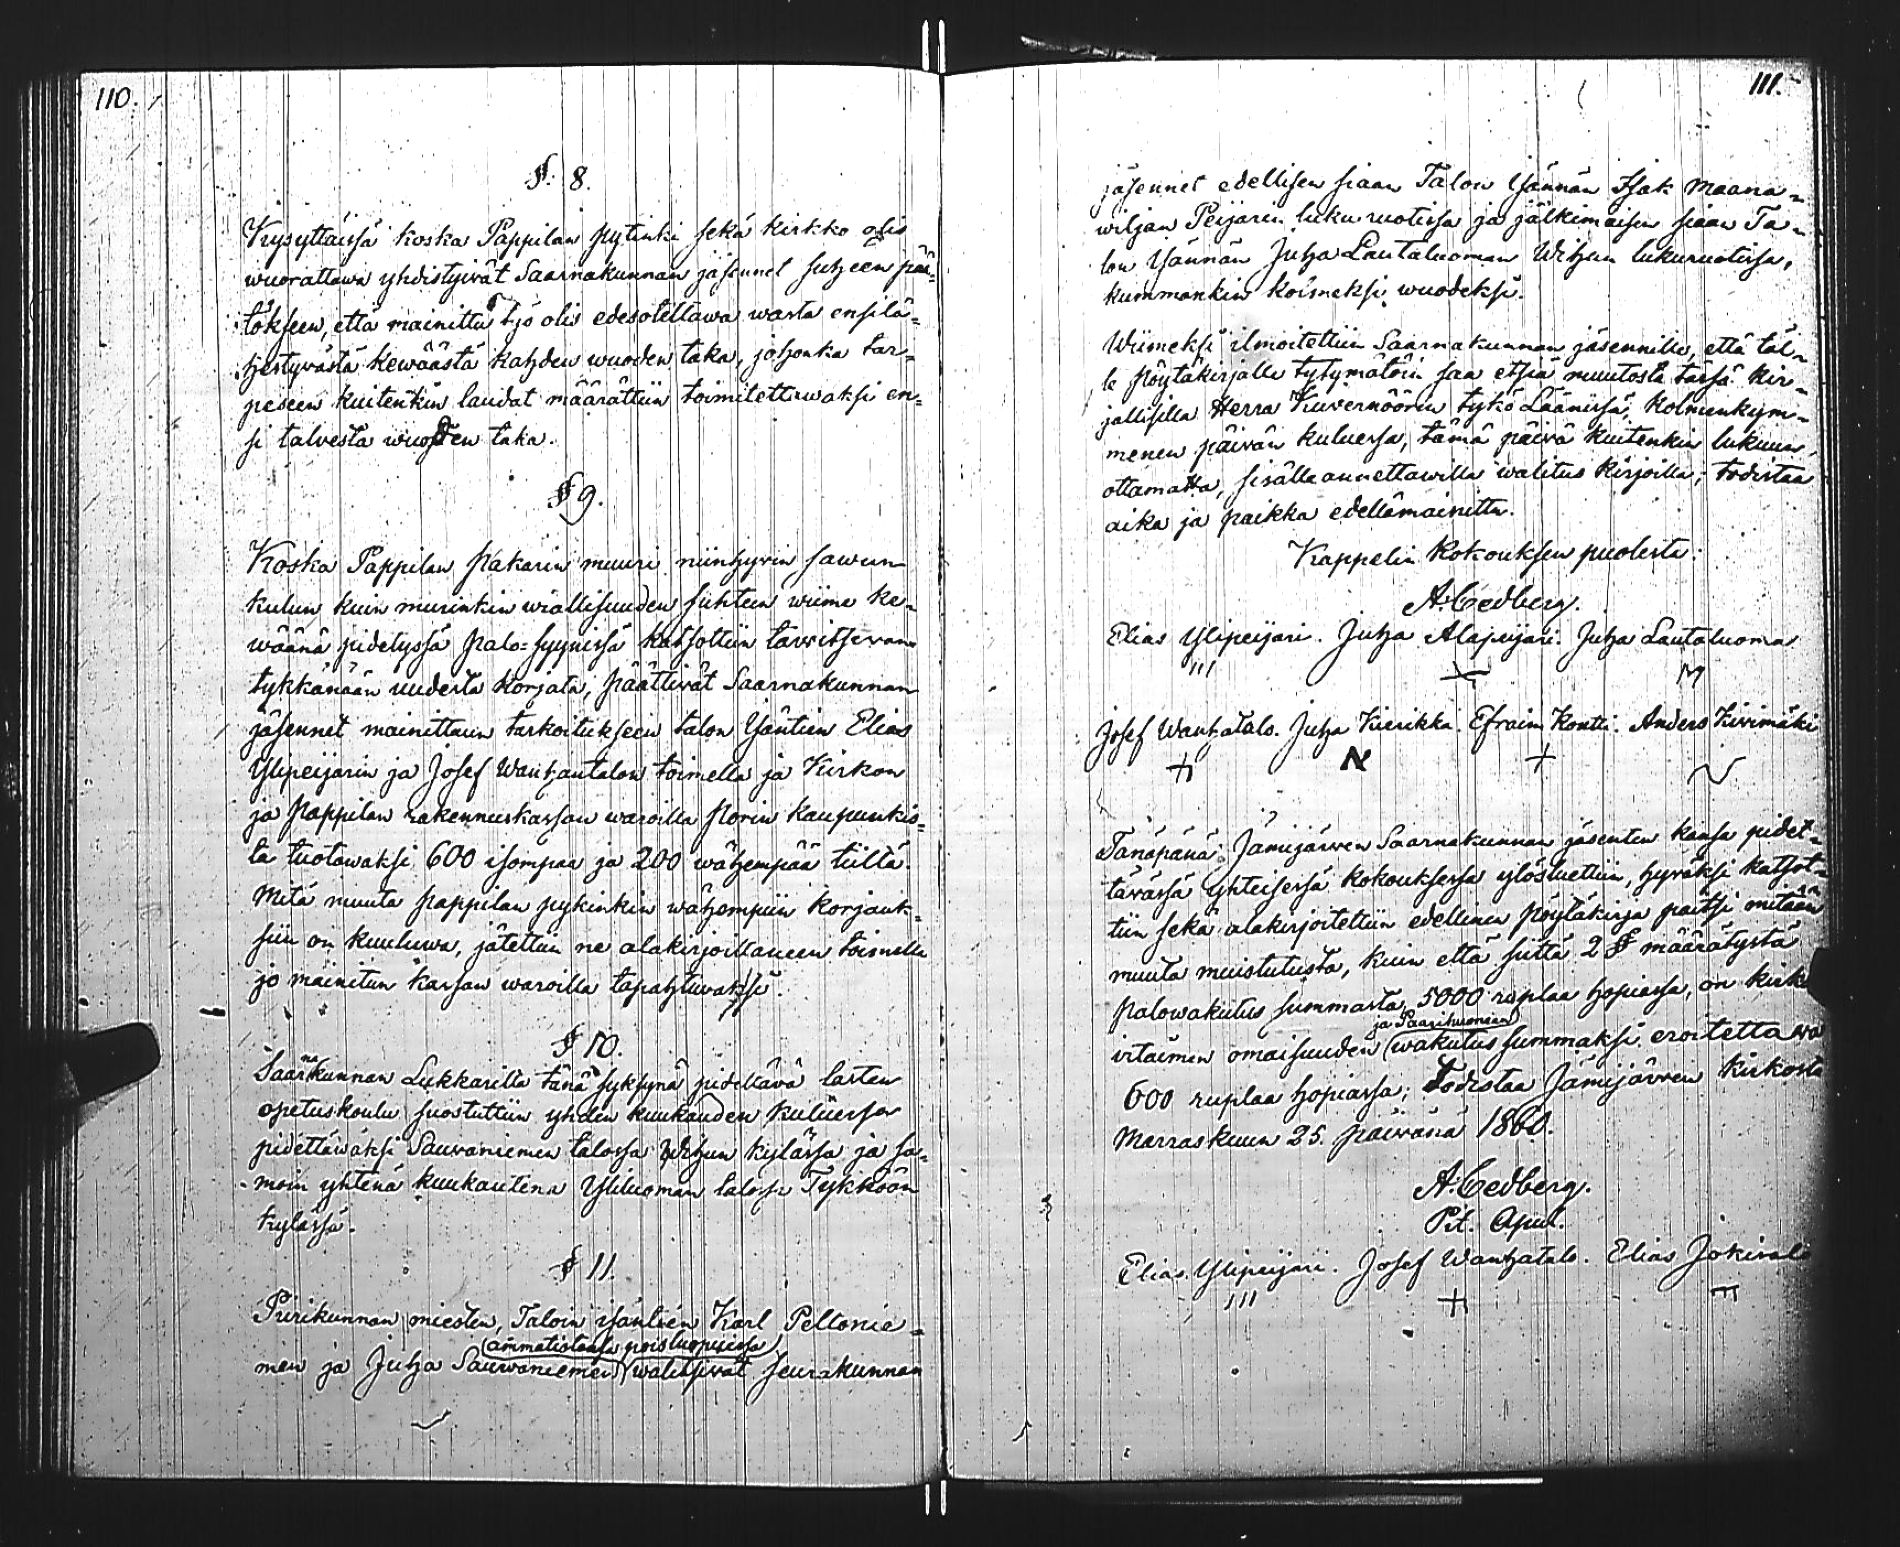 110.
§. 8.
Kysyttäissä koska Pappilan pytinki sekä kirkko olis
wuorattawa yhdistyivät Saarnakunnan jäsennet siheen pää=
tökseen, että mainittu työ olis edesotettawa wasta ensilä=
hestyvästä kewäästä kahden wuoden taka, johonka tar=
peseen kuitenkin laudat määrättiin toimitettawaksi en=
si talvesta wuoden taka.
§ 9.
Koska Pappilan pakarin muuri niinhyvin sawun
kulun kuin muurinkin wiallisuuden suhteen wiime ke=
wäänä pidetyssä palo=syynissä katsottiin tarvitsevan
tykkänään uudesta korjata, päättivät Saarnakunnan
jäsennet mainittuun tarkoitukseen talon Ysäntien Elias
Ylipeijarin ja Josef Wanhantalon toimella ja Kirkon
ja pappilan rakennuskassan waroilla Porin kaupunkis=
ta tuotawaksi 600 isompaa ja 200 wähempää tiiltä.
Mitä muuta pappilan pykinkin wähempiin korjauk=
siin on kuuluwa, jätettiin ne alakirjoittaneen toimella
jo mainitun kassan waroilla tapahtuwaksi.
§ 10.
Saarnakunnan Lukkarilta tänä syksynä pidettävä lasten
opetuskoulu suostuttiin yhden kuukauden kuluessa
pidettäwäksi Sauvaniemen talossa Wihun kylässä ja sa=
moin yhtenä kuukautena Yliluoman talossa Tykköön
kylässä.
§ 11.
Piirikunnan miesten, Taloin isäntien Karl Peltonie=
ammatistansa poisluopuissa
men ja Juha Sauwaniemen walitsivat seurakunnan
111.
jäsennet edellisen siaan Talon Ysännän Isak Maana=
wiljan Peijarin lukuruotissa ja jälkimäisen siaan Ta=
lon Ysännän Juha Lautaluoman Wihun lukuruotissa,
kummankin kolmeksi wuodeksi.
Wiimeksi ilmoitettiin Saarnakunnan jäsennille, että täl=
le pöytäkirjalle tytymätöin saa etsiä muutosta tässä kir=
jallisilla Herra Kuvernöörin tykö Läänissä, Kolmenkym=
menen päivän kuluessa, tämä päivä kuitenkin lukuun
ottamatta, sisälle annettawilla walitus kirjoilla; todistaa
aika ja paikka edellämainittu.
Kappelin kokouksen puolesta:
A. Cedberg.
Elias Ylipeijari. Juha Alapeijari. Juha Lautaluoma
Josef Wanhatalo. Juha Kierikka. Efraim Kontti. Anders Kivimäki
Tänäpänä Jämijärwen Saarnakunnan jäsenten kansa pidet=
tävässä yhteisessä kokouksessa ylösluettiin, hyväksi katsot=
tiin sekä alakirjoitettiin edellinen pöytäkirja paitsi mitään
muuta muistutusta, kuin että siitä 2 § määrätystä
palowakutus summasta, 5000 ruplaa hopiassa, on kirk
ja Saarihuonien
irtaimen omaisuuden wakutus summaksi eroitettawa
600 ruplaa hopiassa; Todistaa Jämijärven Kirkosta
Marraskuun 25. päivänä 1860.
A. Cedberg.
Pit. Apul.
Elias Ylipeijari. Josef Wanhatalo. Elias Jokivali